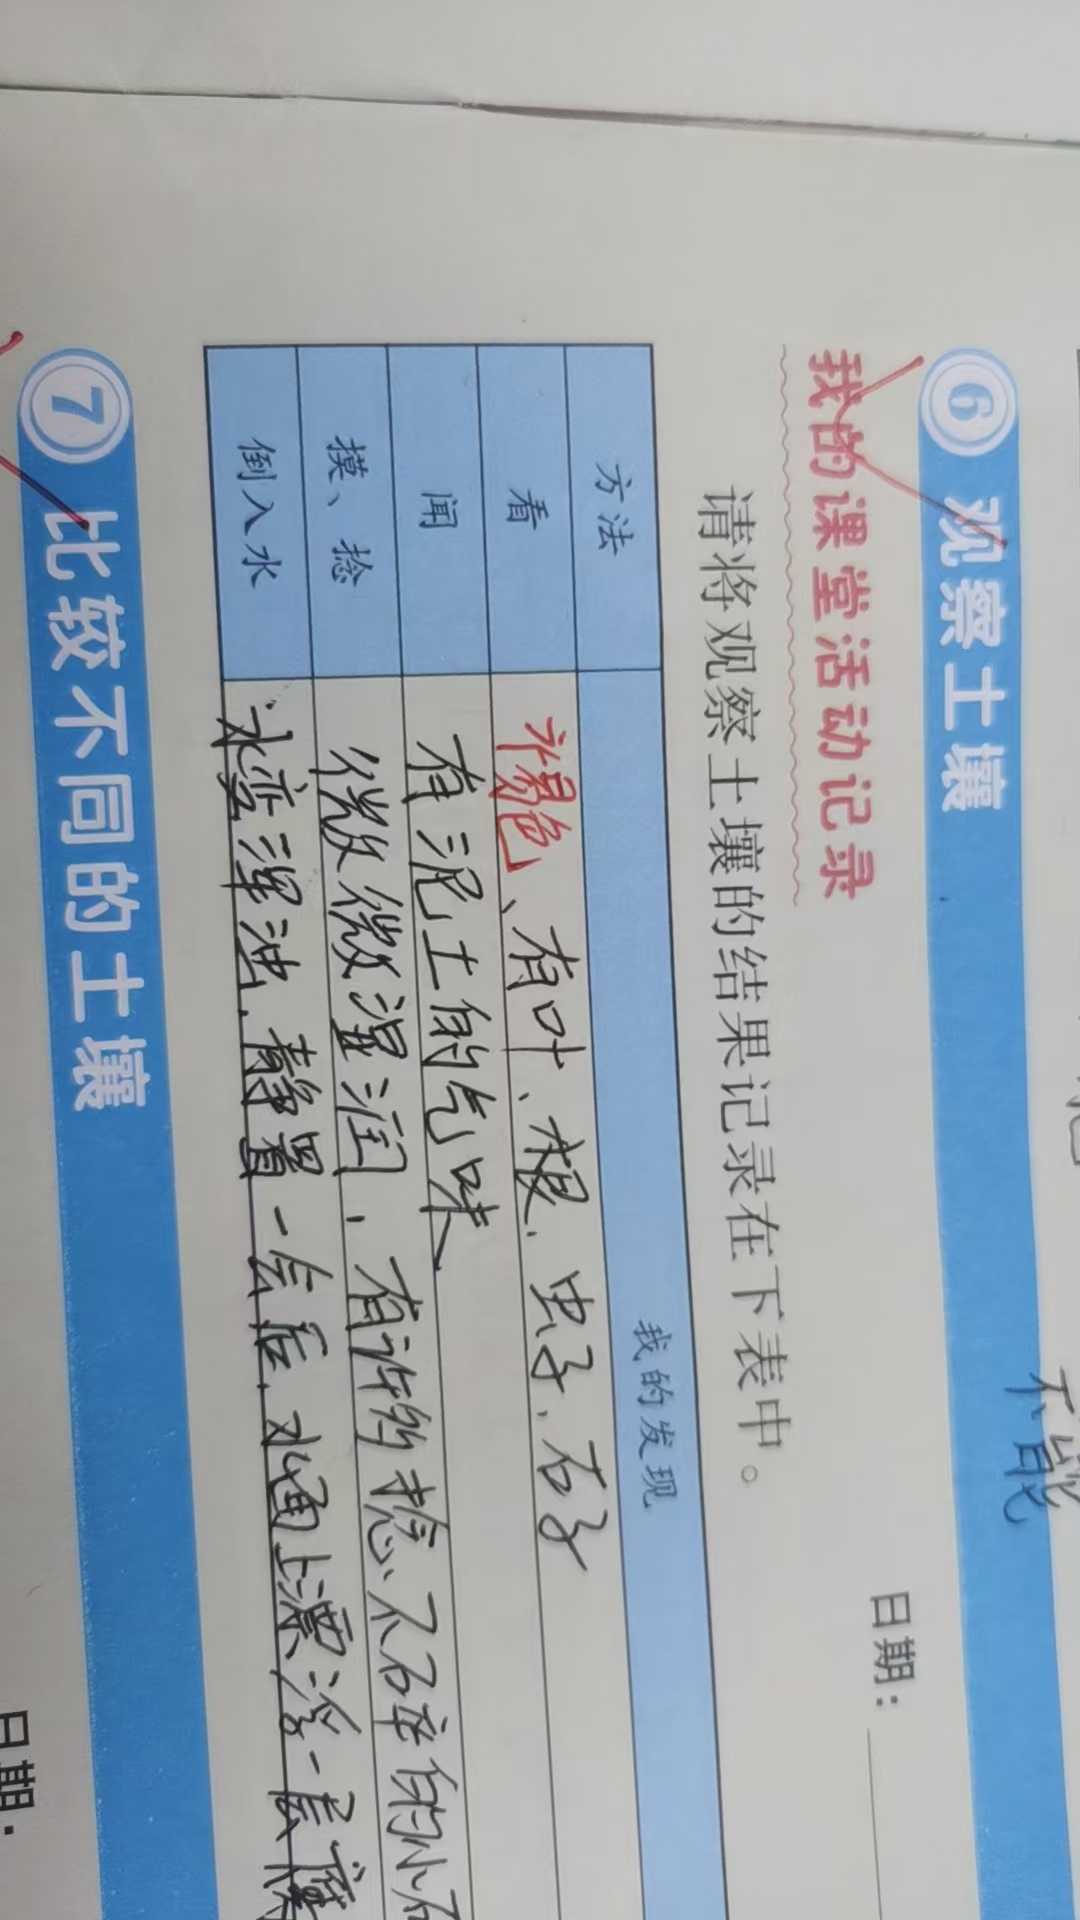 不能
6 观察土壤
我的课堂活动记录
日期：
请将观察土壤的结果记录在下表中。
方法 我的发现
看 褐色、有叶、根、虫子、石子
闻 有泥土的气味
摸、捻 微微湿润，有许多捻不碎的小石
倒入水 水变浑浊，静置一会后，水面上漂浮一层腐
7 比较不同的土壤
日期：